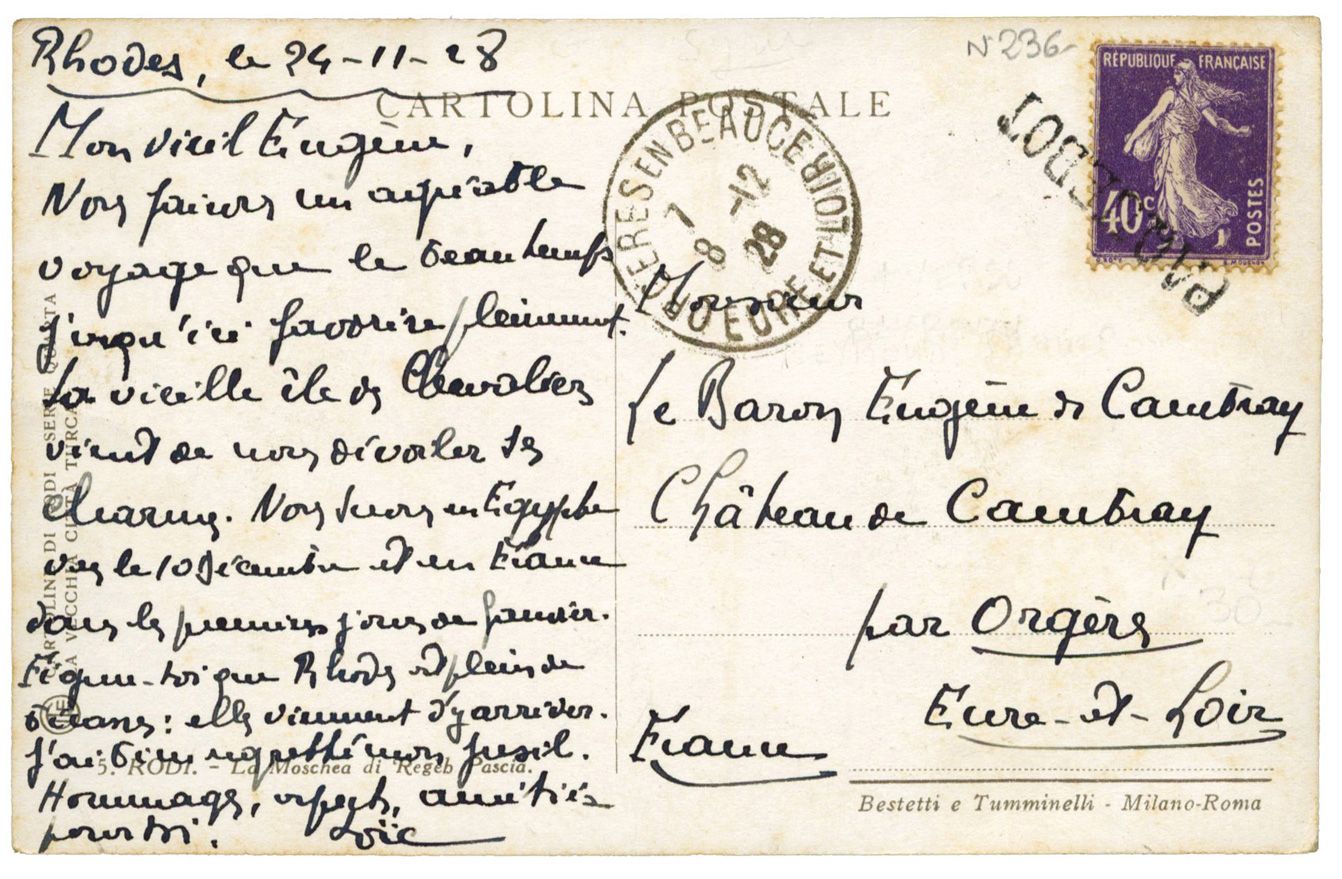 Rhodes, le 24-11-28
CARTOLINA POSTALE
Mon vieil Eugène,
Nous faisons un agréable
voyage que le beau temps
jusqu'ici favorise pleinement.
La vieille île des Chevaliers
vient de nous dévoiler ses
charmes. Nous serons en Egypte
vers le 10 Décembre et en France
dans les premiers jours de Janvier.
Figure-toi que Rhodes est plein de
bécasses : elles viennent d'y arriver.
J'ai bien regretté mon fusil.
Hommages, respects, amitiés
pour toi. Loïc
CARTOLINE DI RODI SERIE QUINTA
LA VECCHIA CITTÀ TURCA
5. RODI. - La Moschea di Regeb Pascià.
N° 236-
RÉPUBLIQUE FRANÇAISE
40c
POSTES
PAQUEBOT
ORGERES EN BEAUCE
EURE ET LOIR
7 -12
8 28
Monsieur
Le Baron Eugène de Cambray
Château de Cambray
par Orgères
Eure-et-Loir
France
30-
Bestetti e Tumminelli - Milano-Roma